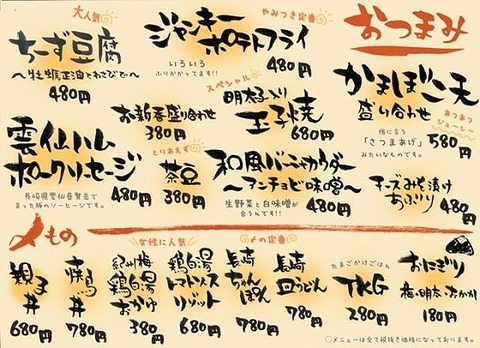 おつまみ
大人気
ちーず豆腐
〜牡蠣正油とわさびで〜
480円
やみつき定番
ジャンキー
ポテトフライ
いろいろ
ふりかかってます!!
480円
かまぼこ天
盛り合わせ
俗に言う
「さつまあげ」
みたいなものです。
あつあつ
ジューシー
580円
お新香盛り合わせ
380円
スペシャル
明太子入り
玉子焼
680円
雲仙ハム
ポークソーセージ
長崎県雲仙普賢岳で
育った豚のソーセージです。
480円
とりあえず
茶豆
380円
和風バーニャカウダー
〜アンチョビ味噌〜
生野菜と白味噌が
合うんです!!
480円
チーズみそ漬け
あぶり
480円
〆もの
親子丼
680円
焼鳥丼
780円
女性に人気
紀州梅
鶏白湯
おかゆ
380円
鶏白湯
トマトソース
リゾット
680円
〆の定番
長崎
ちゃんぽん
780円
長崎
皿うどん
780円
たまごかけごはん
TKG
280円
おにぎり
梅・明太・おかか
180円
○メニューは全て税抜き価格になっております。